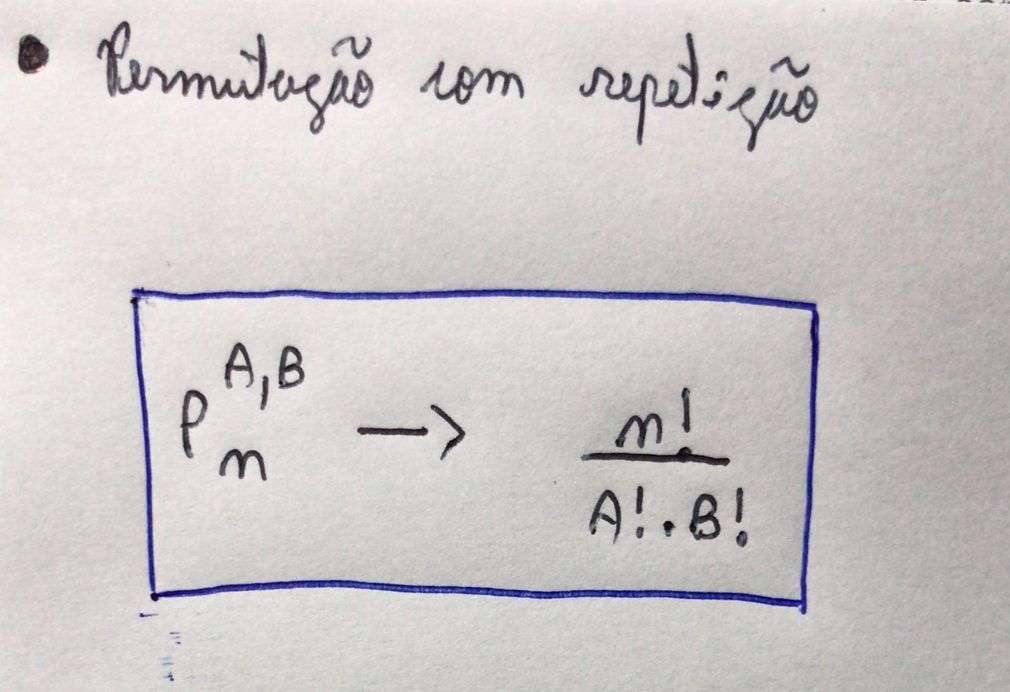 • Permutação com repetição
P_n^{A,B} → n! / A! . B!